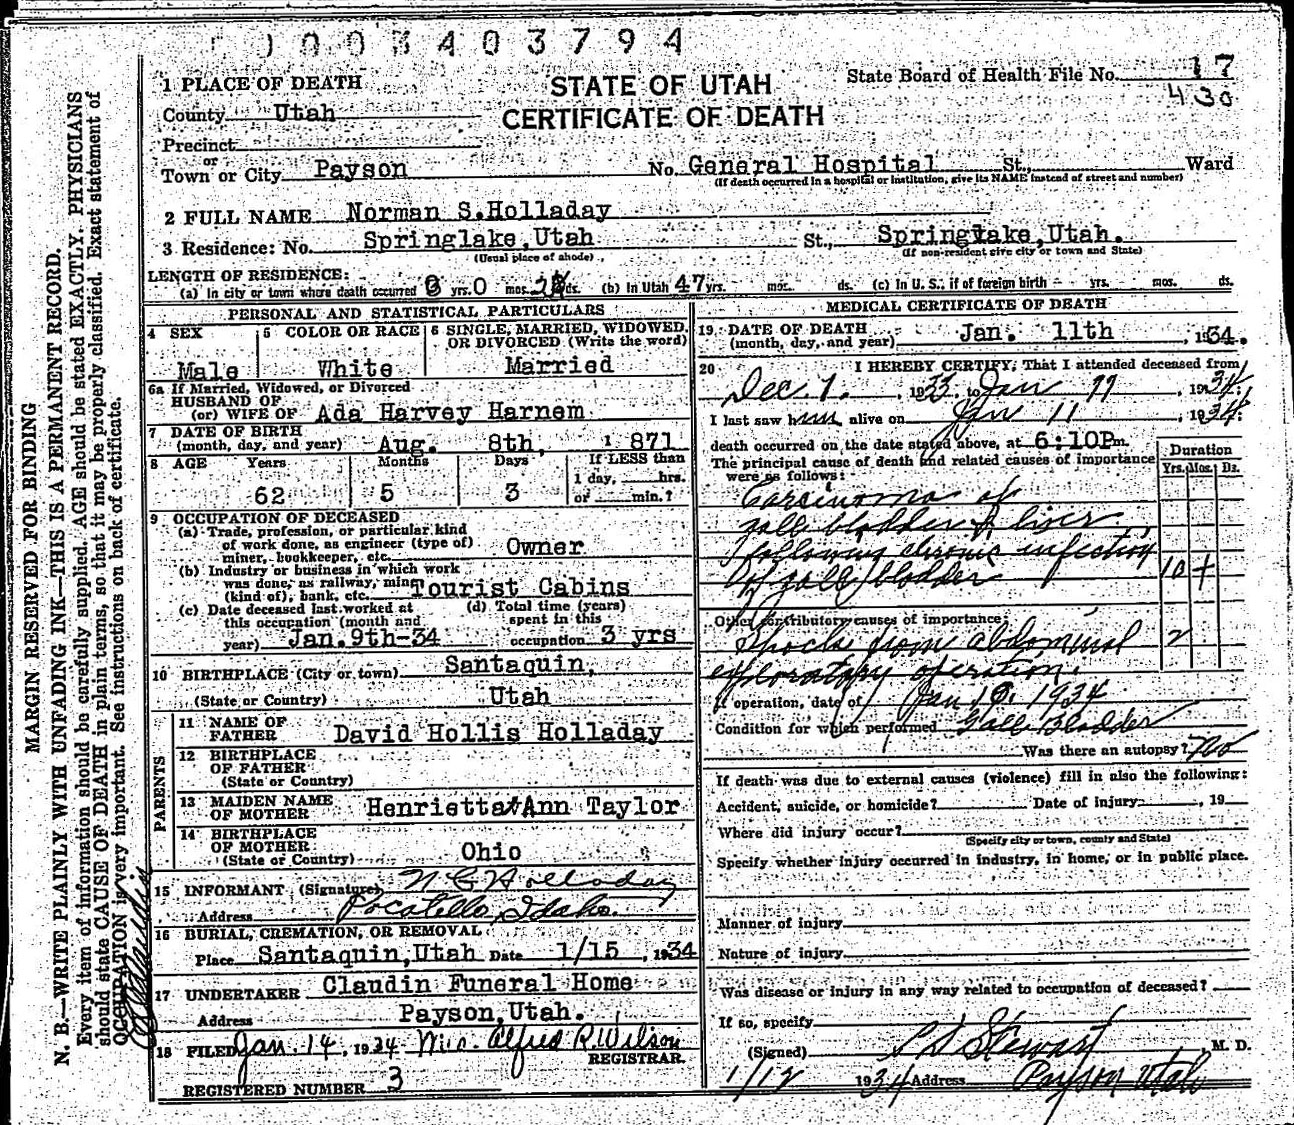 003403794
STATE OF UTAH
CERTIFICATE OF DEATH
State Board of Health File No. 17
430
1 PLACE OF DEATH
County Utah
Precinct
or
Town or City Payson No. General Hospital St., Ward
(If death occurred in a hospital or institution, give its NAME instead of street and number)
2 FULL NAME Norman S.Holladay
3 Residence: No. Springlake,Utah St., Springlake,Utah.
(Usual place of abode) (If non-resident give city or town and State)
LENGTH OF RESIDENCE:
(a) In city or town where death occurred 0 yrs. 0 mos. ds. (b) In Utah 47 yrs. mos. ds. (c) In U. S., if of foreign birth - yrs. mos. ds.
PERSONAL AND STATISTICAL PARTICULARS
4 SEX 5 COLOR OR RACE 6 SINGLE, MARRIED, WIDOWED, OR DIVORCED (Write the word)
Male White Married
6a If Married, Widowed, or Divorced
HUSBAND OF
(or) WIFE OF Ada Harvey Harnem
7 DATE OF BIRTH
(month, day, and year) Aug. 8th, 1871
8 AGE Years Months Days If LESS than
1 day, hrs.
62 5 3 or min.?
9 OCCUPATION OF DECEASED
(a) Trade, profession, or particular kind
of work done, as engineer (type of)
miner, bookkeeper, etc. Owner
(b) Industry or business in which work
was done, as railway, mine
(kind of), bank, etc. Tourist Cabins
(c) Date deceased last worked at (d) Total time (years)
this occupation (month and spent in this
year) Jan.9th-34 occupation 3 yrs
10 BIRTHPLACE (City or town) Santaquin,
(State or Country) Utah
PARENTS
11 NAME OF
FATHER David Hollis Holladay
12 BIRTHPLACE
OF FATHER
(State or Country)
13 MAIDEN NAME
OF MOTHER Henrietta Ann Taylor
14 BIRTHPLACE
OF MOTHER
(State or Country) Ohio
15 INFORMANT (Signature) Holladay
Address Pocatello, Idaho.
16 BURIAL, CREMATION, OR REMOVAL
Place Santaquin,Utah Date 1/15, 1934
17 UNDERTAKER Claudin Funeral Home
Address Payson,Utah.
18 FILED Jan. 14, 1934 Mrs. Alfred R. Wilson
REGISTRAR.
REGISTERED NUMBER 3
MEDICAL CERTIFICATE OF DEATH
19 DATE OF DEATH
(month, day, and year) Jan. 11th, 1934.
20 I HEREBY CERTIFY, That I attended deceased from
Dec. 1. , 1933, to Jan 11 , 1934.
I last saw him alive on Jan 11 , 1934.
death occurred on the date stated above, at 6:10P m.
The principal cause of death and related causes of importance
were as follows:
Duration
Yrs. Mos. Ds.
Carcinoma of
gall bladder & liver
following chronic infection
of gall bladder 10 +
Other contributory causes of importance:
Shock from abdominal 2
exploratory operation.
If operation, date of Jan 10. 1934
Condition for which performed Gall Bladder
Was there an autopsy? No
If death was due to external causes (violence) fill in also the following:
Accident, suicide, or homicide? Date of injury , 19
Where did injury occur?
(Specify city or town, county and State)
Specify whether injury occurred in industry, in home, or in public place.
Manner of injury
Nature of injury
Was disease or injury in any way related to occupation of deceased?
If so, specify
(Signed) L D Stewart, M. D.
1/12 1934 Address Payson Utah
MARGIN RESERVED FOR BINDING
N. B.—WRITE PLAINLY WITH UNFADING INK—THIS IS A PERMANENT RECORD.
Every item of information should be carefully supplied. AGE should be stated EXACTLY. PHYSICIANS
should state CAUSE OF DEATH in plain terms, so that it may be properly classified. Exact statement of
OCCUPATION is very important. See instructions on back of certificate.